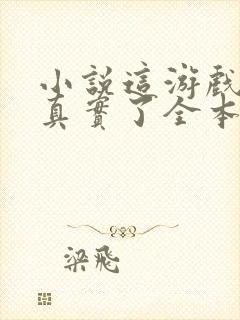 小説這游戲
真實了全本
梁飛